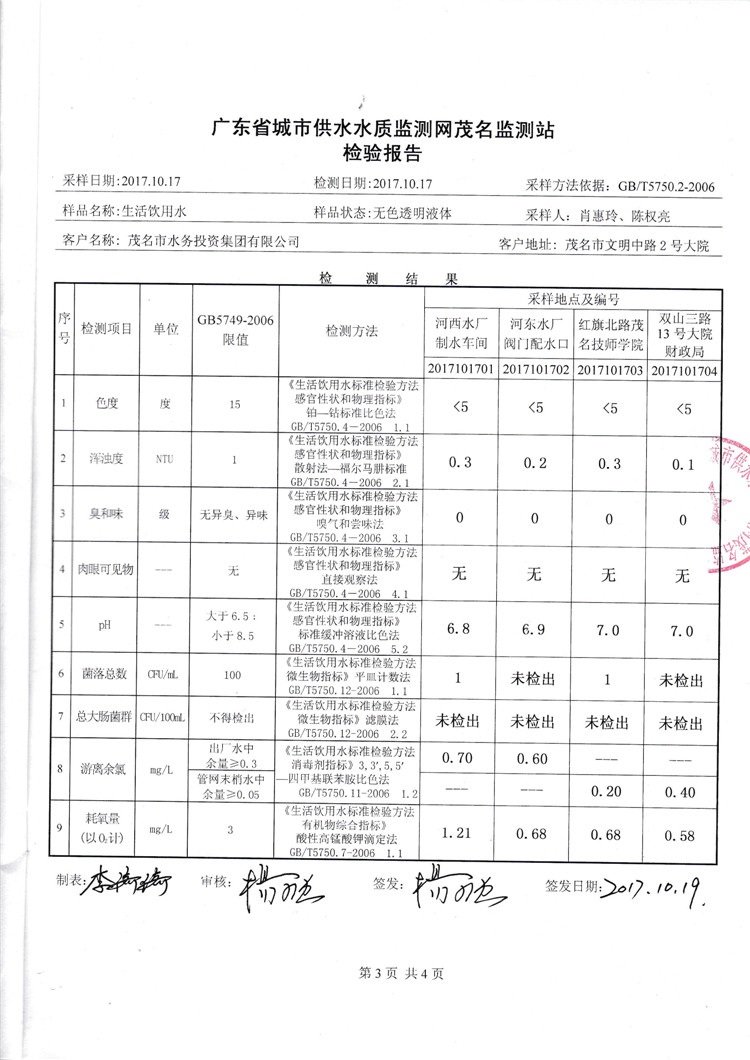 广东省城市供水水质监测网茂名监测站
检验报告
采样日期:2017.10.17 检测日期:2017.10.17 采样方法依据: GB/T5750.2-2006
样品名称:生活饮用水 样品状态:无色透明液体 采样人: 肖惠玲、陈权亮
客户名称: 茂名市水务投资集团有限公司 客户地址: 茂名市文明中路2号大院
检 测 结 果
序号 检测项目 单位 GB5749-2006 限值 检测方法 采样地点及编号
河西水厂 制水车间 河东水厂 阀门配水口 红旗北路茂名技师学院 双山三路13号大院财政局
2017101701 2017101702 2017101703 2017101704
1 色度 度 15 《生活饮用水标准检验方法 感官性状和物理指标》 铂—钴标准比色法 GB/T5750.4-2006 1.1 <5 <5 <5 <5
2 浑浊度 NTU 1 《生活饮用水标准检验方法 感官性状和物理指标》 散射法—福尔马肼标准 GB/T5750.4-2006 2.1 0.3 0.2 0.3 0.1
3 臭和味 级 无异臭、异味 《生活饮用水标准检验方法 感官性状和物理指标》 嗅气和尝味法 GB/T5750.4-2006 3.1 0 0 0 0
4 肉眼可见物 --- 无 《生活饮用水标准检验方法 感官性状和物理指标》 直接观察法 GB/T5750.4-2006 4.1 无 无 无 无
5 pH --- 大于6.5; 小于8.5 《生活饮用水标准检验方法 感官性状和物理指标》 标准缓冲溶液比色法 GB/T5750.4-2006 5.2 6.8 6.9 7.0 7.0
6 菌落总数 CFU/mL 100 《生活饮用水标准检验方法 微生物指标》平皿计数法 GB/T5750.12-2006 1.1 1 未检出 1 未检出
7 总大肠菌群 CFU/100mL 不得检出 《生活饮用水标准检验方法 微生物指标》滤膜法 GB/T5750.12-2006 2.2 未检出 未检出 未检出 未检出
8 游离余氯 mg/L 出厂水中 余量≥0.3 《生活饮用水标准检验方法 消毒剂指标》3,3′,5,5′—四甲基联苯胺比色法 GB/T5750.11-2006 1.2 0.70 0.60 --- ---
管网末梢水中 余量≥0.05 --- --- 0.20 0.40
9 耗氧量 (以O₂计) mg/L 3 《生活饮用水标准检验方法 有机物综合指标》 酸性高锰酸钾滴定法 GB/T5750.7-2006 1.1 1.21 0.68 0.68 0.58
制表: 审核: 签发: 签发日期: 2017.10.19.
第3页 共4页